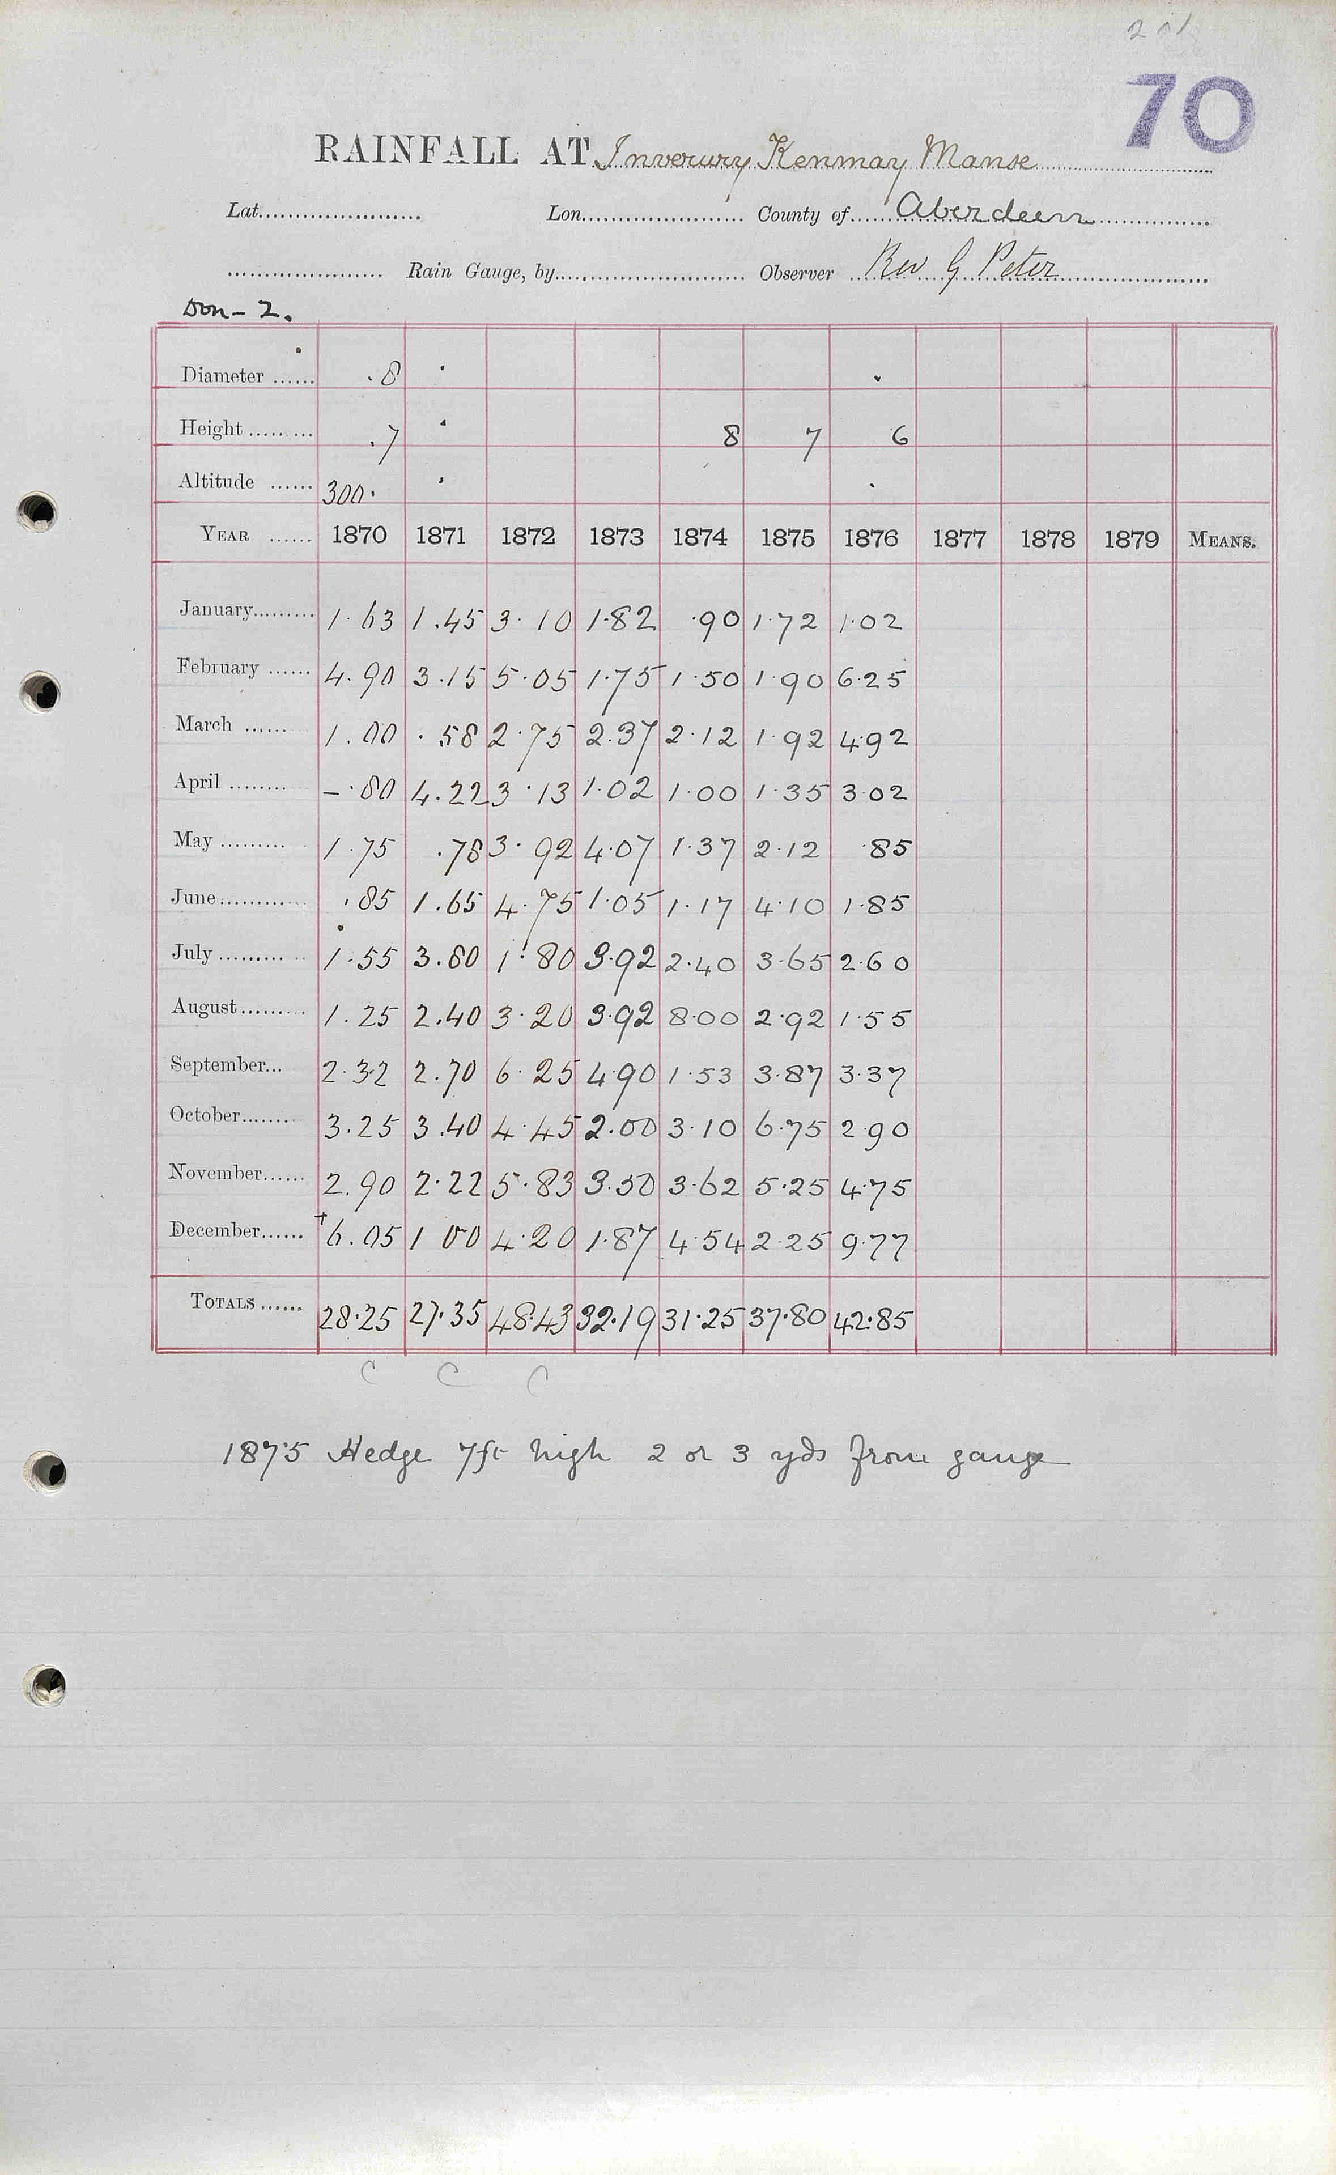 201
70
RAINFALL AT Inverury Kenmay Manse
Lat. Lon. County of Aberdeen
Rain Gauge, by Observer Rev G Peter
Don - 2.
Diameter ...... .8
Height ...... .7 8 7 6
Altitude ...... 300.
YEAR ...... 1870 1871 1872 1873 1874 1875 1876 1877 1878 1879 MEANS.
January ...... 1.63 1.45 3.10 1.82 .90 1.72 1.02
February ...... 4.90 3.15 5.05 1.75 1.50 1.90 6.25
March ...... 1.00 .58 2.75 2.37 2.12 1.92 4.92
April ...... -.80 4.22 3.13 1.02 1.00 1.35 3.02
May ...... 1.75 .78 3.92 4.07 1.37 2.12 .85
June ...... .85 1.65 4.75 1.05 1.17 4.10 1.85
July ...... 1.55 3.80 1.80 3.92 2.40 3.65 2.60
August ...... 1.25 2.40 3.20 3.92 8.00 2.92 1.55
September... 2.32 2.70 6.25 4.90 1.53 3.87 3.37
October ...... 3.25 3.40 4.45 2.00 3.10 6.75 2.90
November ...... 2.90 2.22 5.83 3.50 3.62 5.25 4.75
December ...... +6.05 1 00 4.20 1.87 4.54 2.25 9.77
TOTALS ...... 28.25 27.35 48.43 32.19 31.25 37.80 42.85
C C C
1875 Hedge 7ft high 2 or 3 yds from gauge